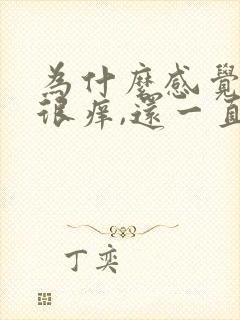 為什麼感覺
很癢,還一直
丁奕